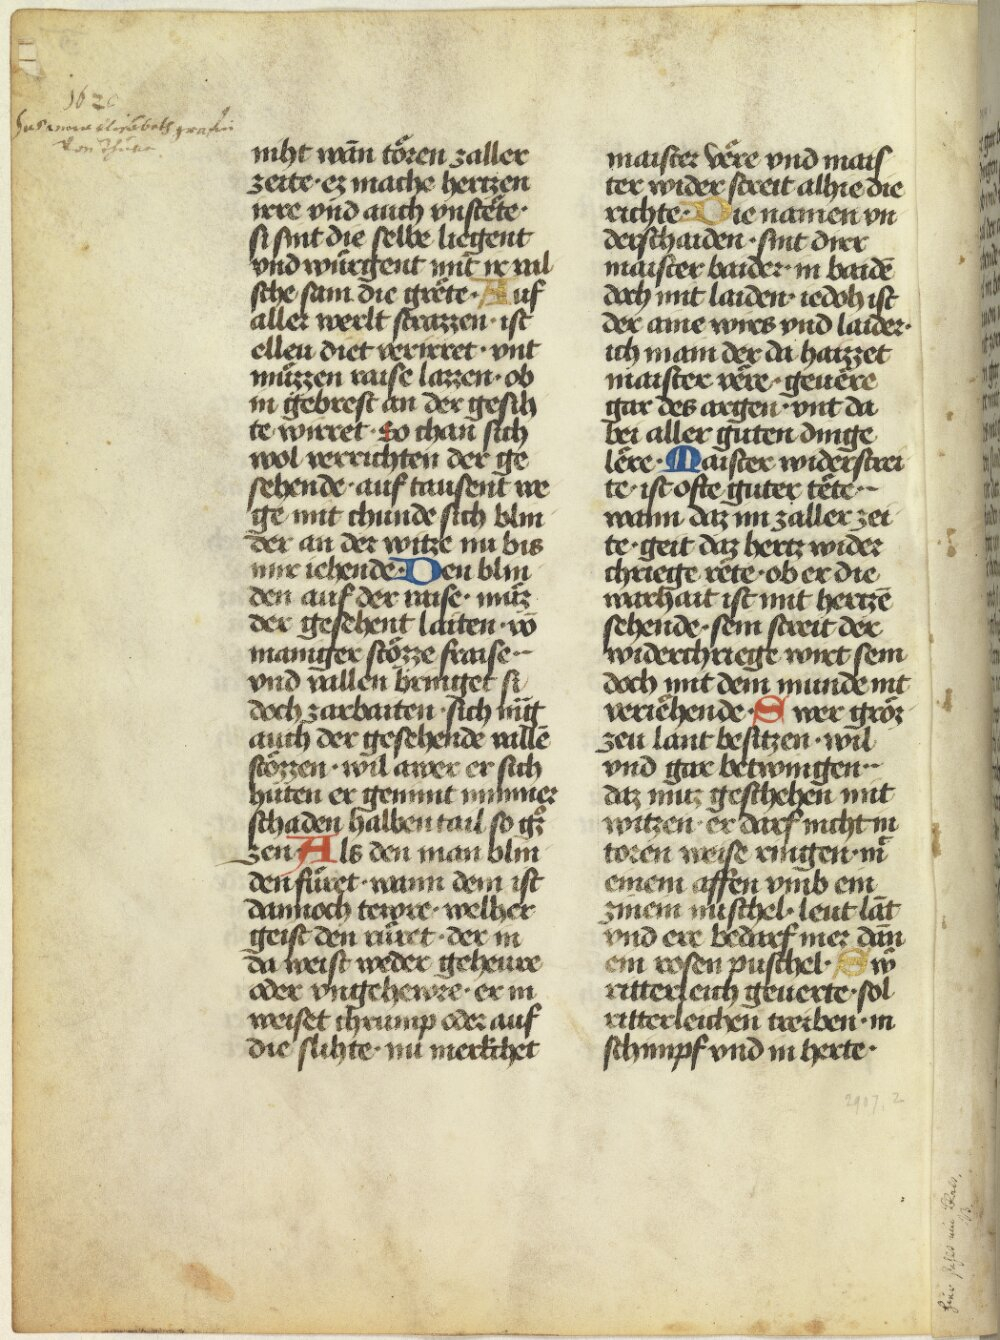 1620
Susanna Elisabeth grafin
von Thurn
niht wañ tören zaller
zeite · ez mache hertzen
irre vnd auch vnstete ·
si sint die selbe liegent
vnd würgent mit ir val
sche sam die grete · Auf
aller werlt strazzen · ist
elleu diet verirret · vnt
müzzen raise lazzen · ob
in gebrest an der gesih
te wirret · so chan sich
wol verrichten der ge
sehende · auf tausent we
ge mit chunde sich blin
der an der witze nu bis
mir iehende · Den blin
den auf der raise · müz
der gesehent laiten · vō
maniger stözze fraise ··
vnd vallen bringet si
doch zarbaiten · sich müt
auch der gesehende vallē
stözzen · wil awer er sich
hüten er genimt nimmer
schaden halben tail so grö
zen · Als den man blin
den füret · wann dem ist
dannoch tewre · welher
geist den rüret · der in
da weist weder geheure
oder vngehewre · er in
weiset chrump oder auf
die slihte · nu merkchet
maister vere vnd mais
ter wider streit alhie die
richte · Die namen vn
derschaiden · sint dirr
maister baider · in baidē
doch mit laiden · iedoh ist
der aine wirs vnd laider ·
ich main der da haizzet
maister vere · geuere
gar des argen · vnt da
bei aller guten dinge
lere · Maister widerstrei
te · ist ofte guter tete ··
wann daz im zaller zei
te · geit daz hertz wider
chriege rete · ob er die
warhait ist mit hertzē
sehende · sein streit der
widerchriege wirt sein
doch mit dem munde nit
veriehende · Swer gröz
zeu lant besitzen · wil
vnd gar betwingen ··
daz muz geschehen mit
witzen · er darf nicht in
toren weise ringen · mit
einem affen vmb ein
zinem müschel · leut lāt
vnd ere bedarf mer dan
ein rosen puschel · Sw
ritterleich geuerte · sol
ritterleichen treiben · in
schimpf vnd in herte ·
2907, 2